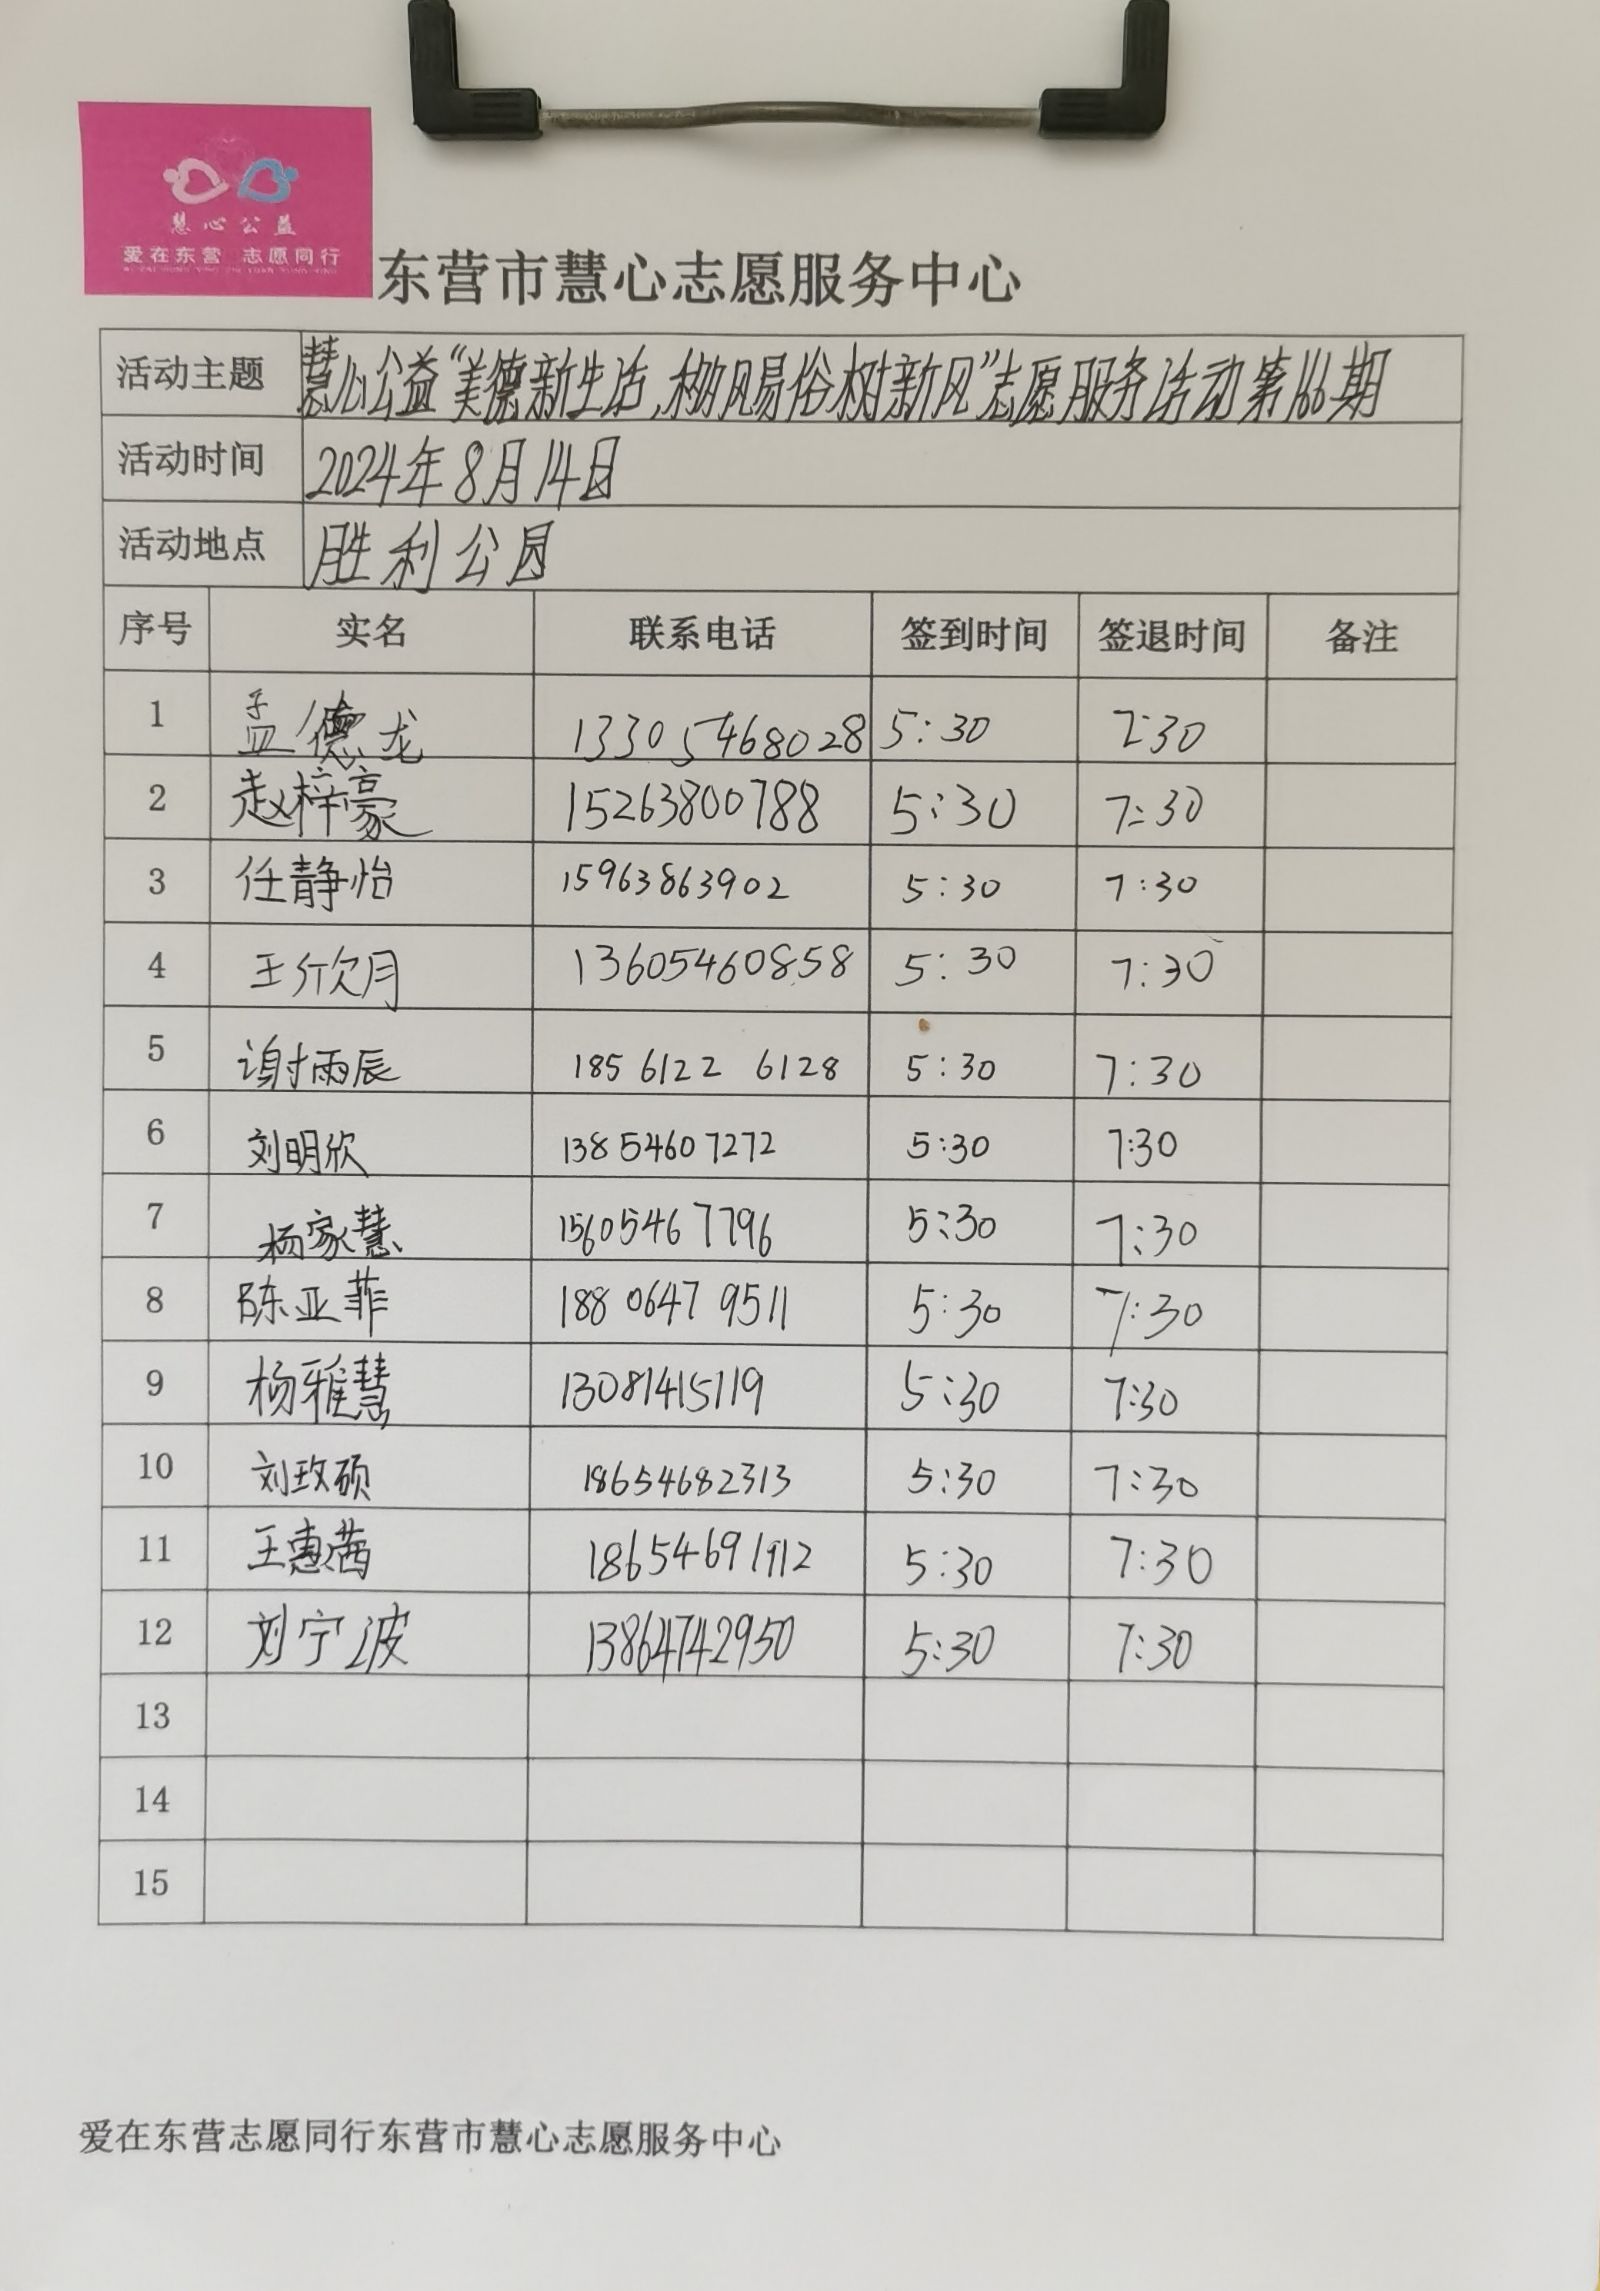 慧心公益
爱在东营 志愿同行
东营市慧心志愿服务中心
活动主题 慧心公益“美德新生活,移风易俗树新风”志愿服务活动第166期
活动时间 2024年8月14日
活动地点 胜利公园
序号 实名 联系电话 签到时间 签退时间 备注
1 孟德龙 13305468028 5:30 7:30
2 赵梓豪 15263800788 5:30 7:30
3 任静怡 15963863902 5:30 7:30
4 王欣月 13605460858 5:30 7:30
5 谢雨辰 185 6122 6128 5:30 7:30
6 刘明欣 138 5460 7272 5:30 7:30
7 杨家慧 1560546 7796 5:30 7:30
8 陈亚菲 188 0647 9511 5:30 7:30
9 杨雅慧 13081415119 5:30 7:30
10 刘玫硕 18654682313 5:30 7:30
11 王惠茜 18654691912 5:30 7:30
12 刘宁波 13864742950 5:30 7:30
13
14
15
爱在东营志愿同行东营市慧心志愿服务中心